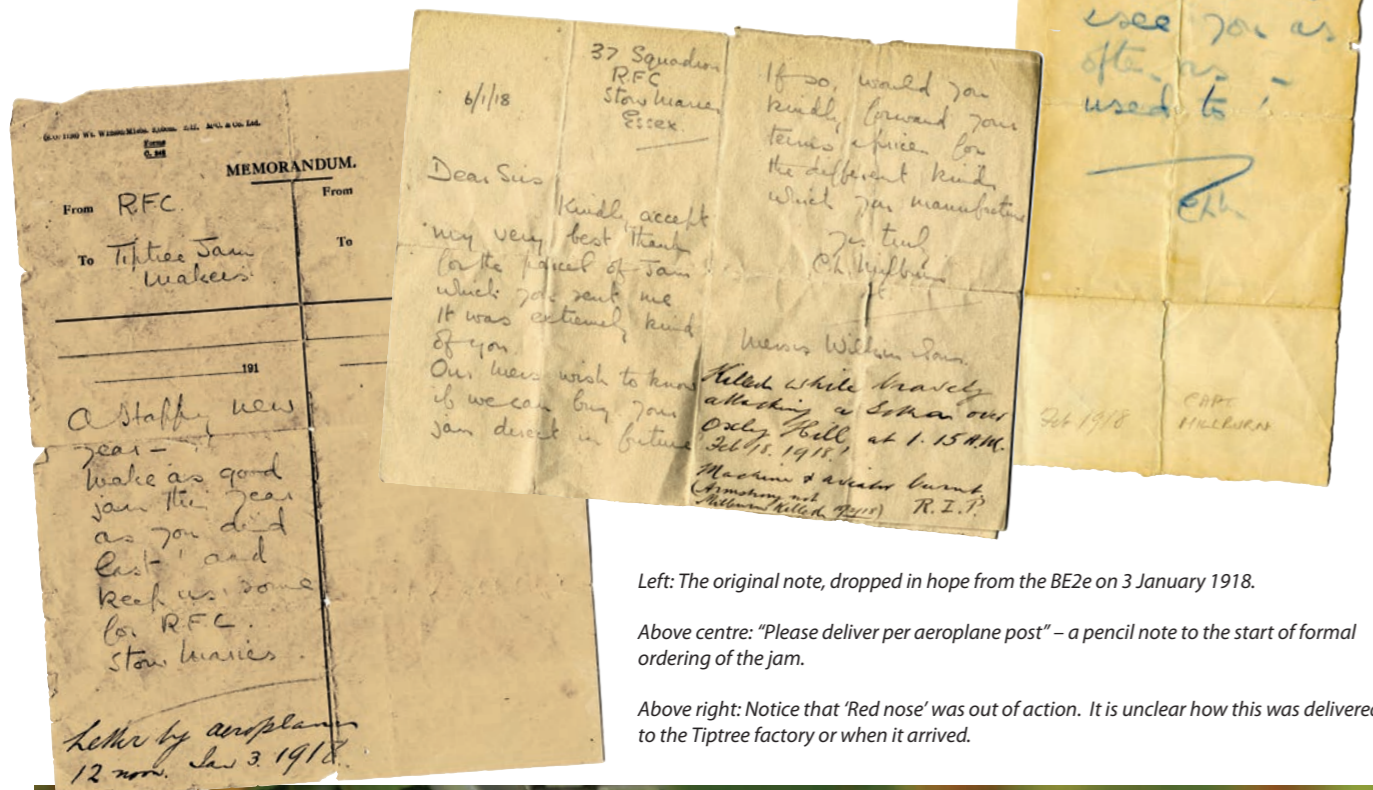 MEMORANDUM.
From RFC.
From
To Tiptree Jam
makers
To
191
A Happy new
year –
make as good
jam this year
as you did
last and
keep us some
for RFC.
Stow Maries.
Letter by aeroplane
12 noon. Jan 3. 1918.
37 Squadron
RFC
Stow Maries
Essex.
6/1/18
Dear Sirs
Kindly accept
my very best thanks
for the parcel of Jam
which you sent me
It was extremely kind
of you.
Our mess wish to know
if we can buy your
jam direct in future
If so, would you
kindly forward your
terms & prices for
the different kinds
which you manufacture
Yrs truly
C.L. Milburn
Messrs Wilkin & Sons.
Killed while bravely
attacking a Gotha over
Oxley Hill, at 1.15 A.M.
Feb 18. 1918!
Machine & aviator burnt
(Armstrong not
Milburn killed 17/2/18) R.I.P.
see you as
often as I
used to!
Feb 1918
CAPT
MILLBURN
Left: The original note, dropped in hope from the BE2e on 3 January 1918.
Above centre: “Please deliver per aeroplane post” – a pencil note to the start of formal
ordering of the jam.
Above right: Notice that ‘Red nose’ was out of action. It is unclear how this was delivered
to the Tiptree factory or when it arrived.